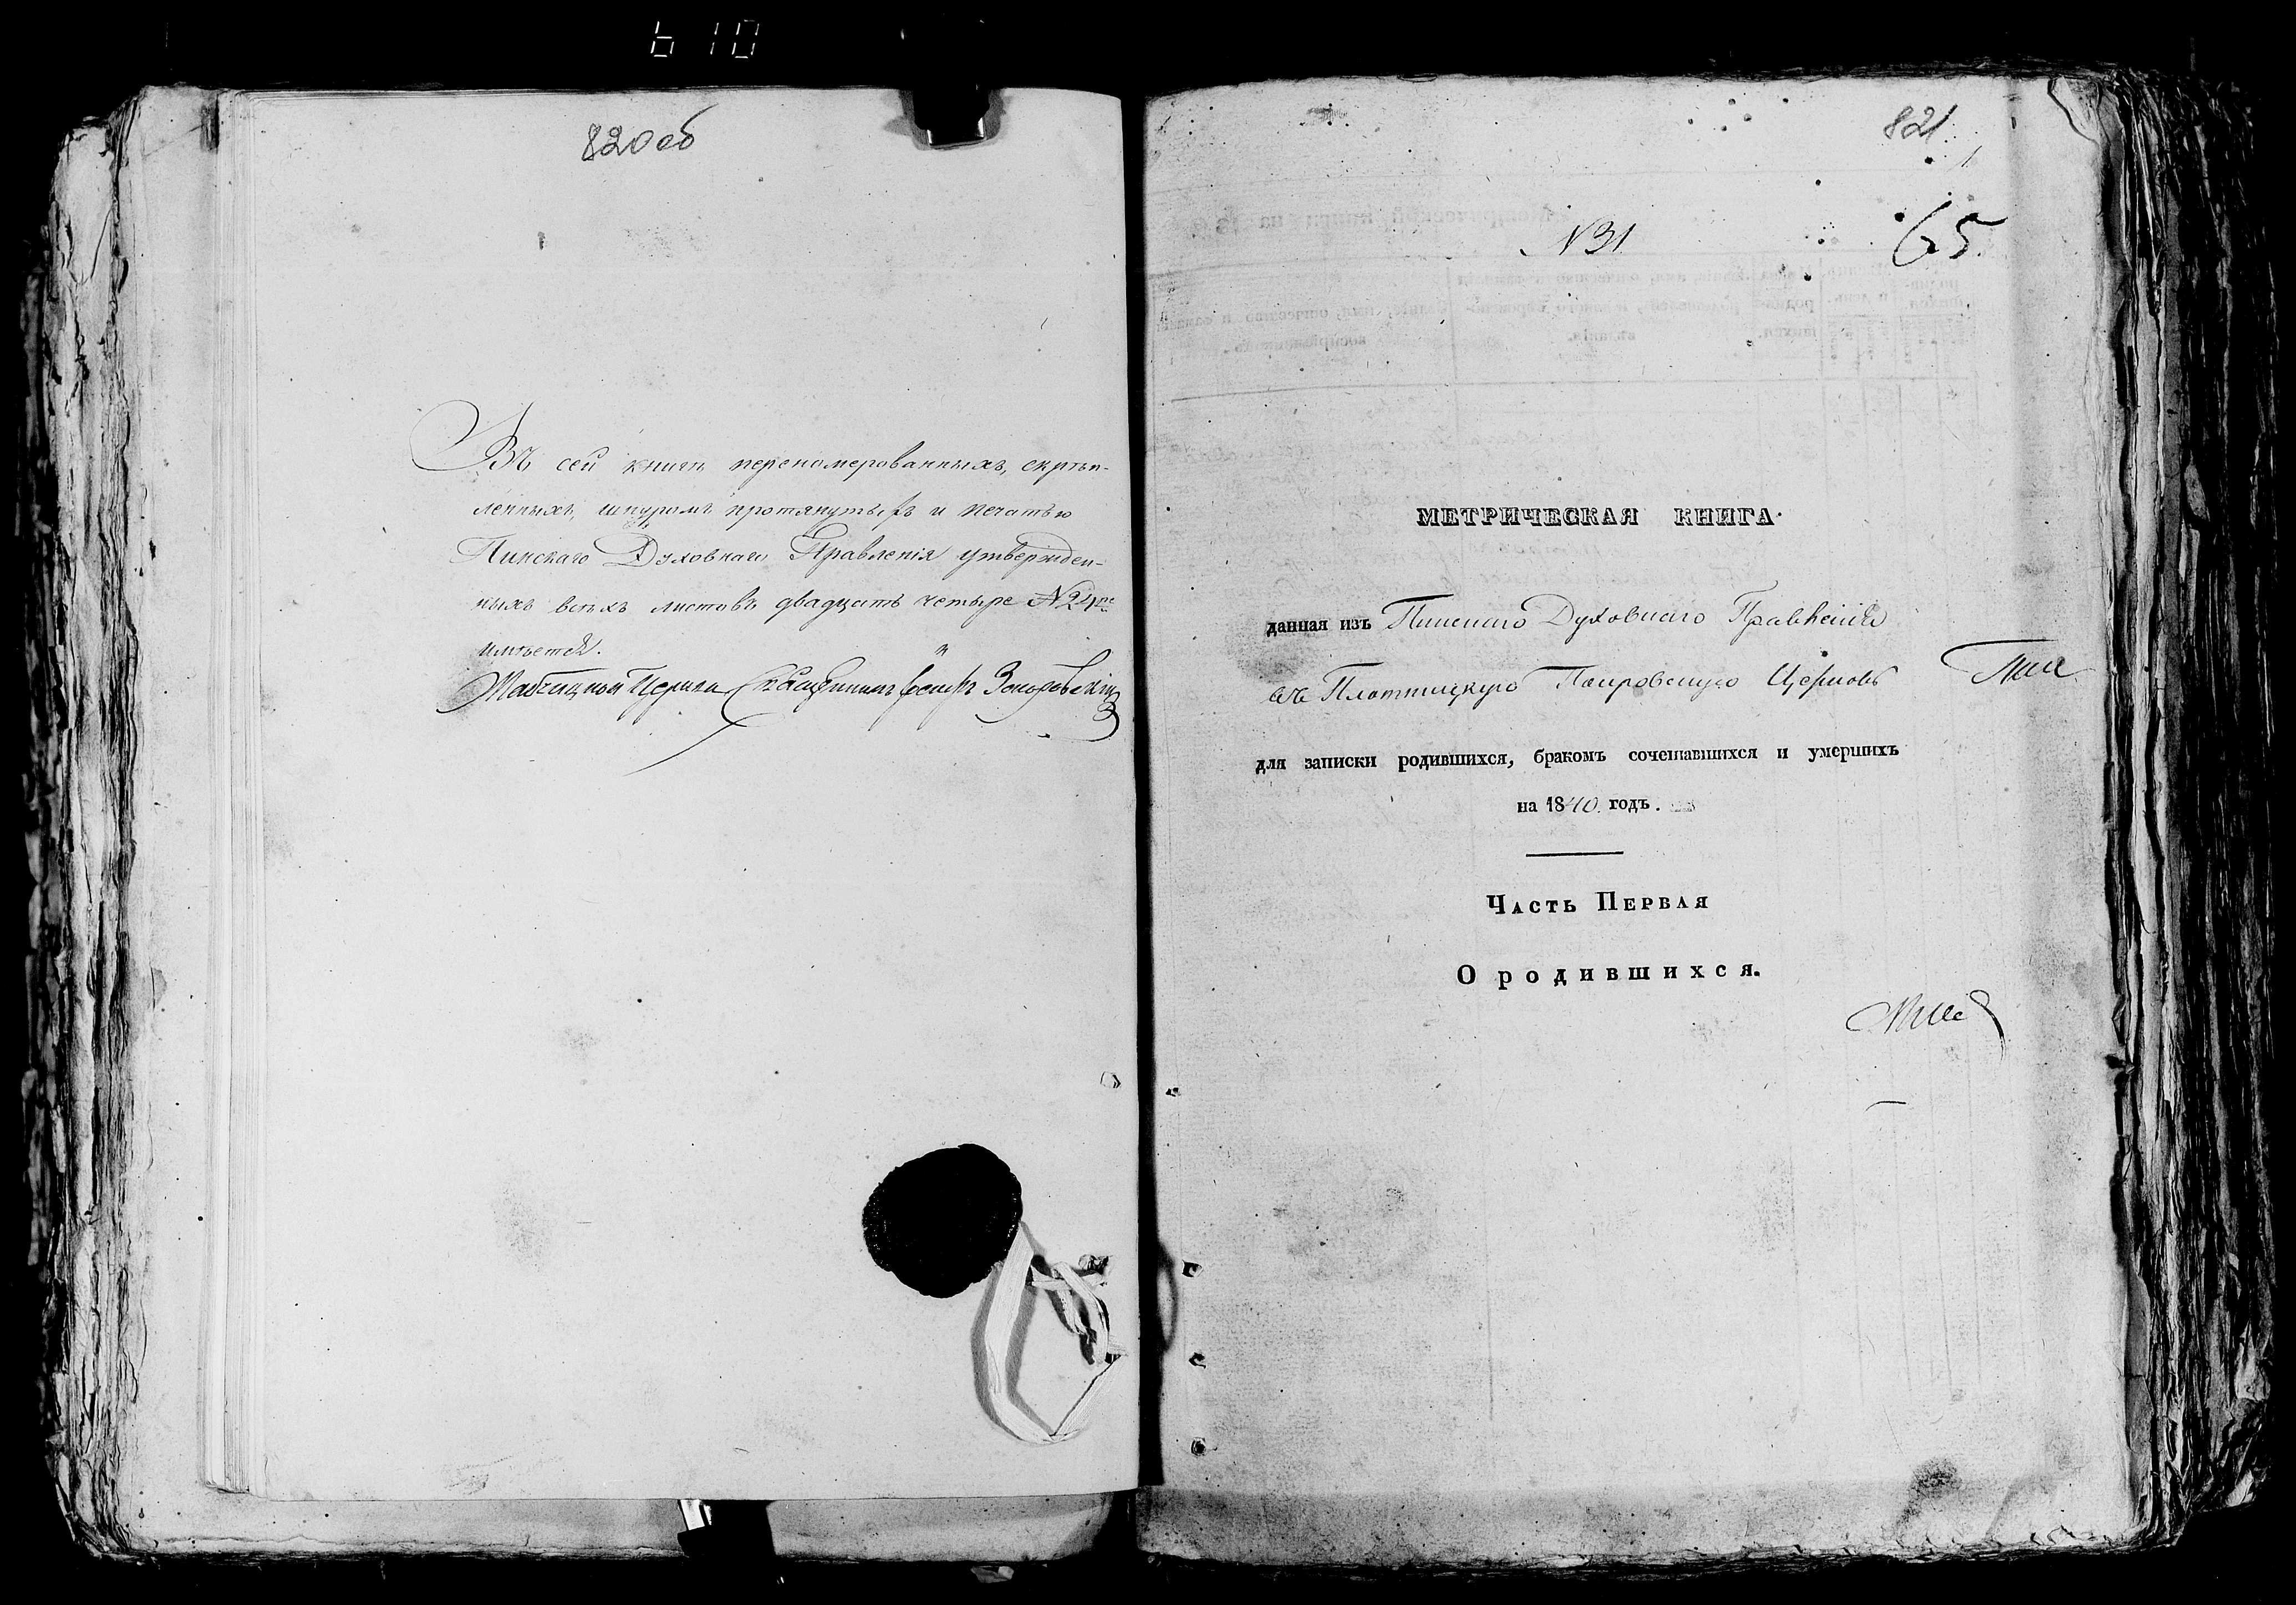 610
820об
Въ сей книги переномерованныхъ, скрѣп-
ленныхъ, шнуромъ протянутыхъ и печатью
Пинскаго Духовнаго Правленія утвержден-
ныхъ всѣхъ листовъ двадцать четыре №24ре
имѣется.
Церкви Священникъ
821
1
№31
65.
МЕТРИЧЕСКАЯ КНИГА
данная изъ Пинскаго Духовнаго Правленія
въ Плотницкую Покровскую Церковь
для записки родившихся, бракомъ сочетавшихся и умершихъ
на 1840 годъ.
Часть Первая
О родившихся.